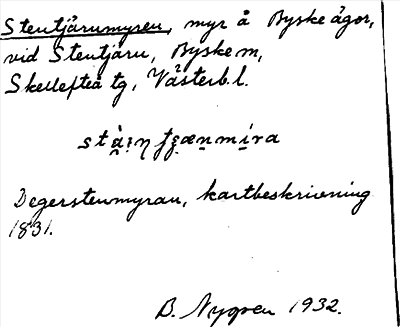 Stentjärnmyren, myr å Byske ägor,
vid Stentjärn, Byske sn,
Skellefteå tg, Västerb. l.
Degerstenmyran, kartbeskrivning
1831.
B. Nygren 1932.